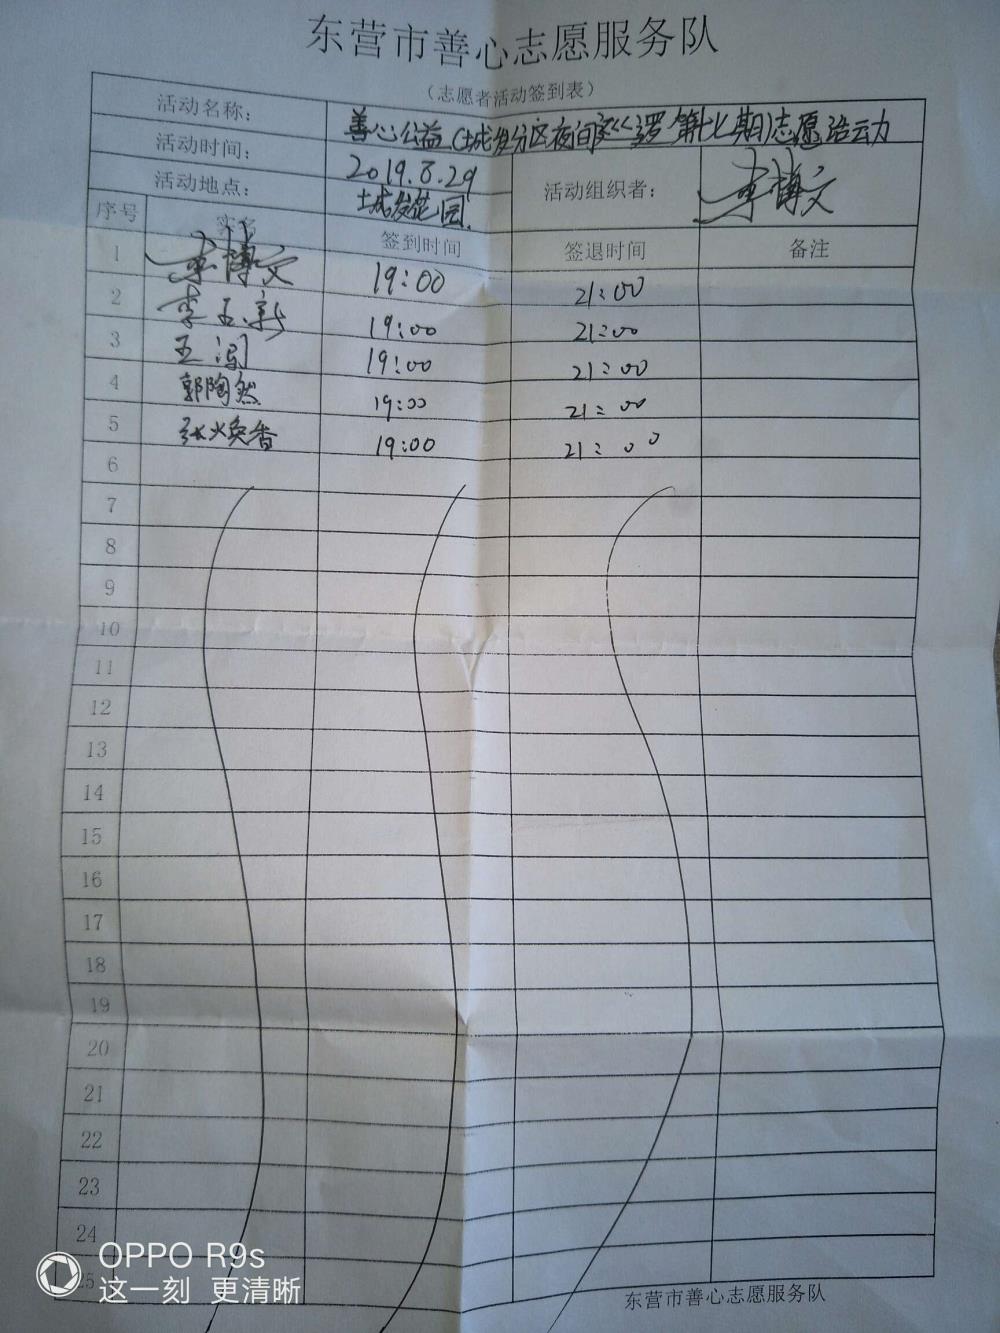 东营市善心志愿服务队
（志愿者活动签到表）
活动名称： 善心公益（城发分区夜间巡逻第十七期）志愿活动
活动时间： 2019.8.29
活动地点： 城发花园 活动组织者： 李博文
序号 实名 签到时间 签退时间 备注
1 李博文 19:00 21:00
2 李玉新 19:00 21:00
3 王闯 19:00 21:00
4 郭陶然 19:00 21:00
5 张焕香 19:00 21:00
6
7
8
9
10
11
12
13
14
15
16
17
18
19
20
21
22
23
24
25
东营市善心志愿服务队
OPPO R9s
这一刻 更清晰